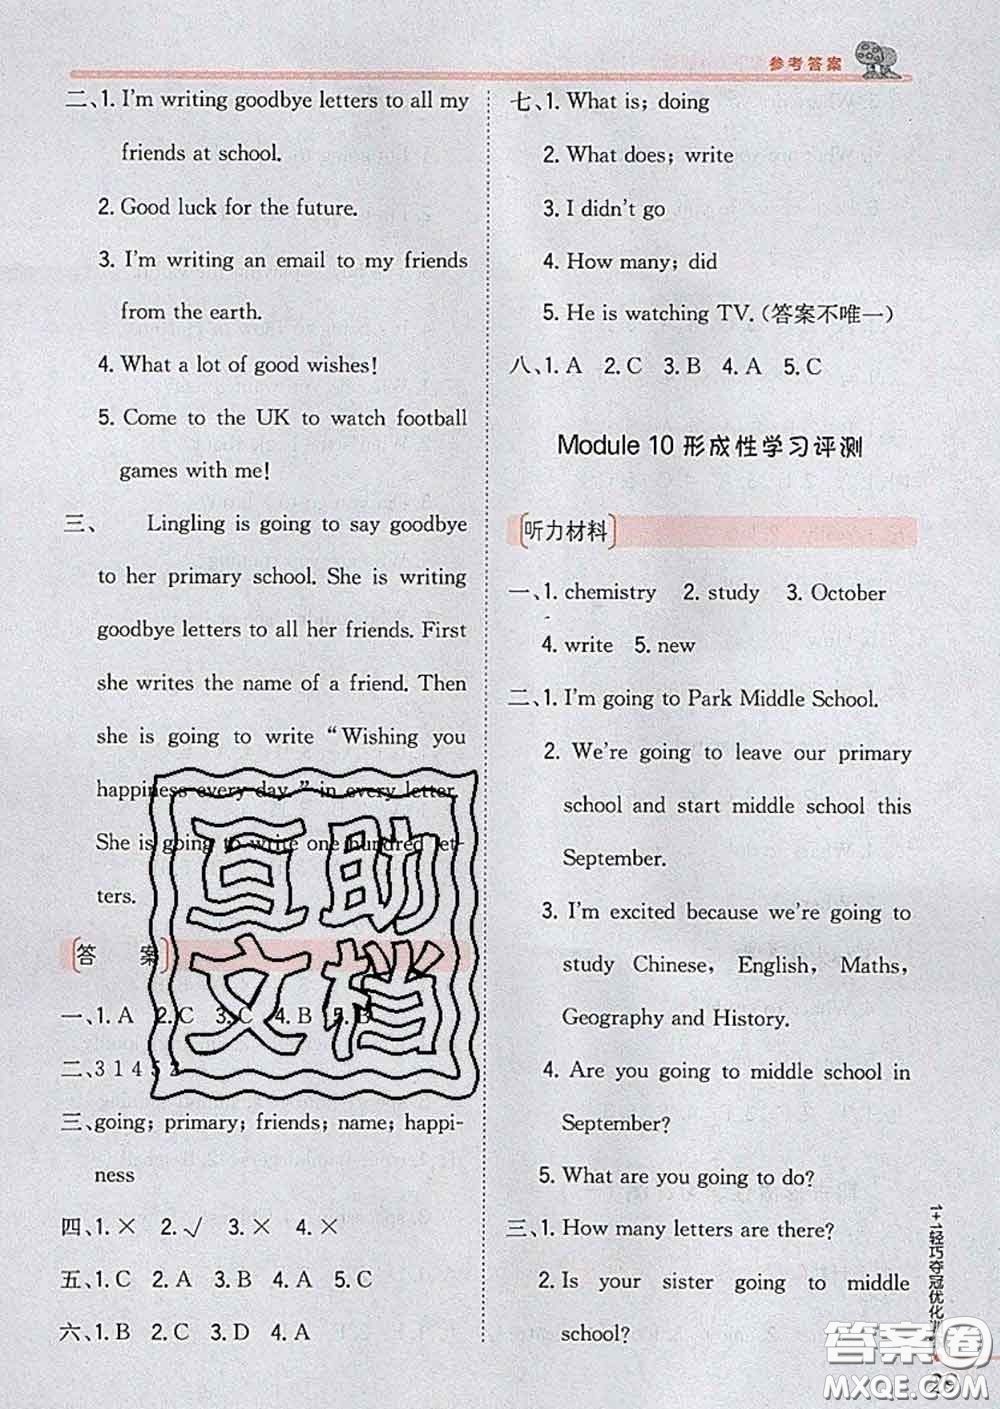 参考答案
二、1. I'm writing goodbye letters to all my
friends at school.
2. Good luck for the future.
3. I'm writing an email to my friends
from the earth.
4. What a lot of good wishes!
5. Come to the UK to watch football
games with me!
三、 Lingling is going to say goodbye
to her primary school. She is writing
goodbye letters to all her friends. First
she writes the name of a friend. Then
she is going to write “Wishing you
happiness every day.” in every letter.
She is going to write one hundred let-
ters.
答 案
一、1. A 2. C 3. C 4. B 5. B
二、3 1 4 5 2
三、going; primary; friends; name; happi-
ness
四、1. × 2. √ 3. × 4. ×
五、1. C 2. A 3. A 4. A 5. C
六、1. B 2. C 3. D 4. A
七、1. What is; doing
2. What does; write
3. I didn't go
4. How many; did
5. He is watching TV.(答案不唯一)
八、1. A 2. C 3. B 4. A 5. C
Module 10 形成性学习评测
听力材料
一、1. chemistry 2. study 3. October
4. write 5. new
二、1. I'm going to Park Middle School.
2. We're going to leave our primary
school and start middle school this
September.
3. I'm excited because we're going to
study Chinese, English, Maths,
Geography and History.
4. Are you going to middle school in
September?
5. What are you going to do?
三、1. How many letters are there?
2. Is your sister going to middle
school?
1+1轻巧夺冠优化
29
互助
文档
答案圈
MXQE.COM